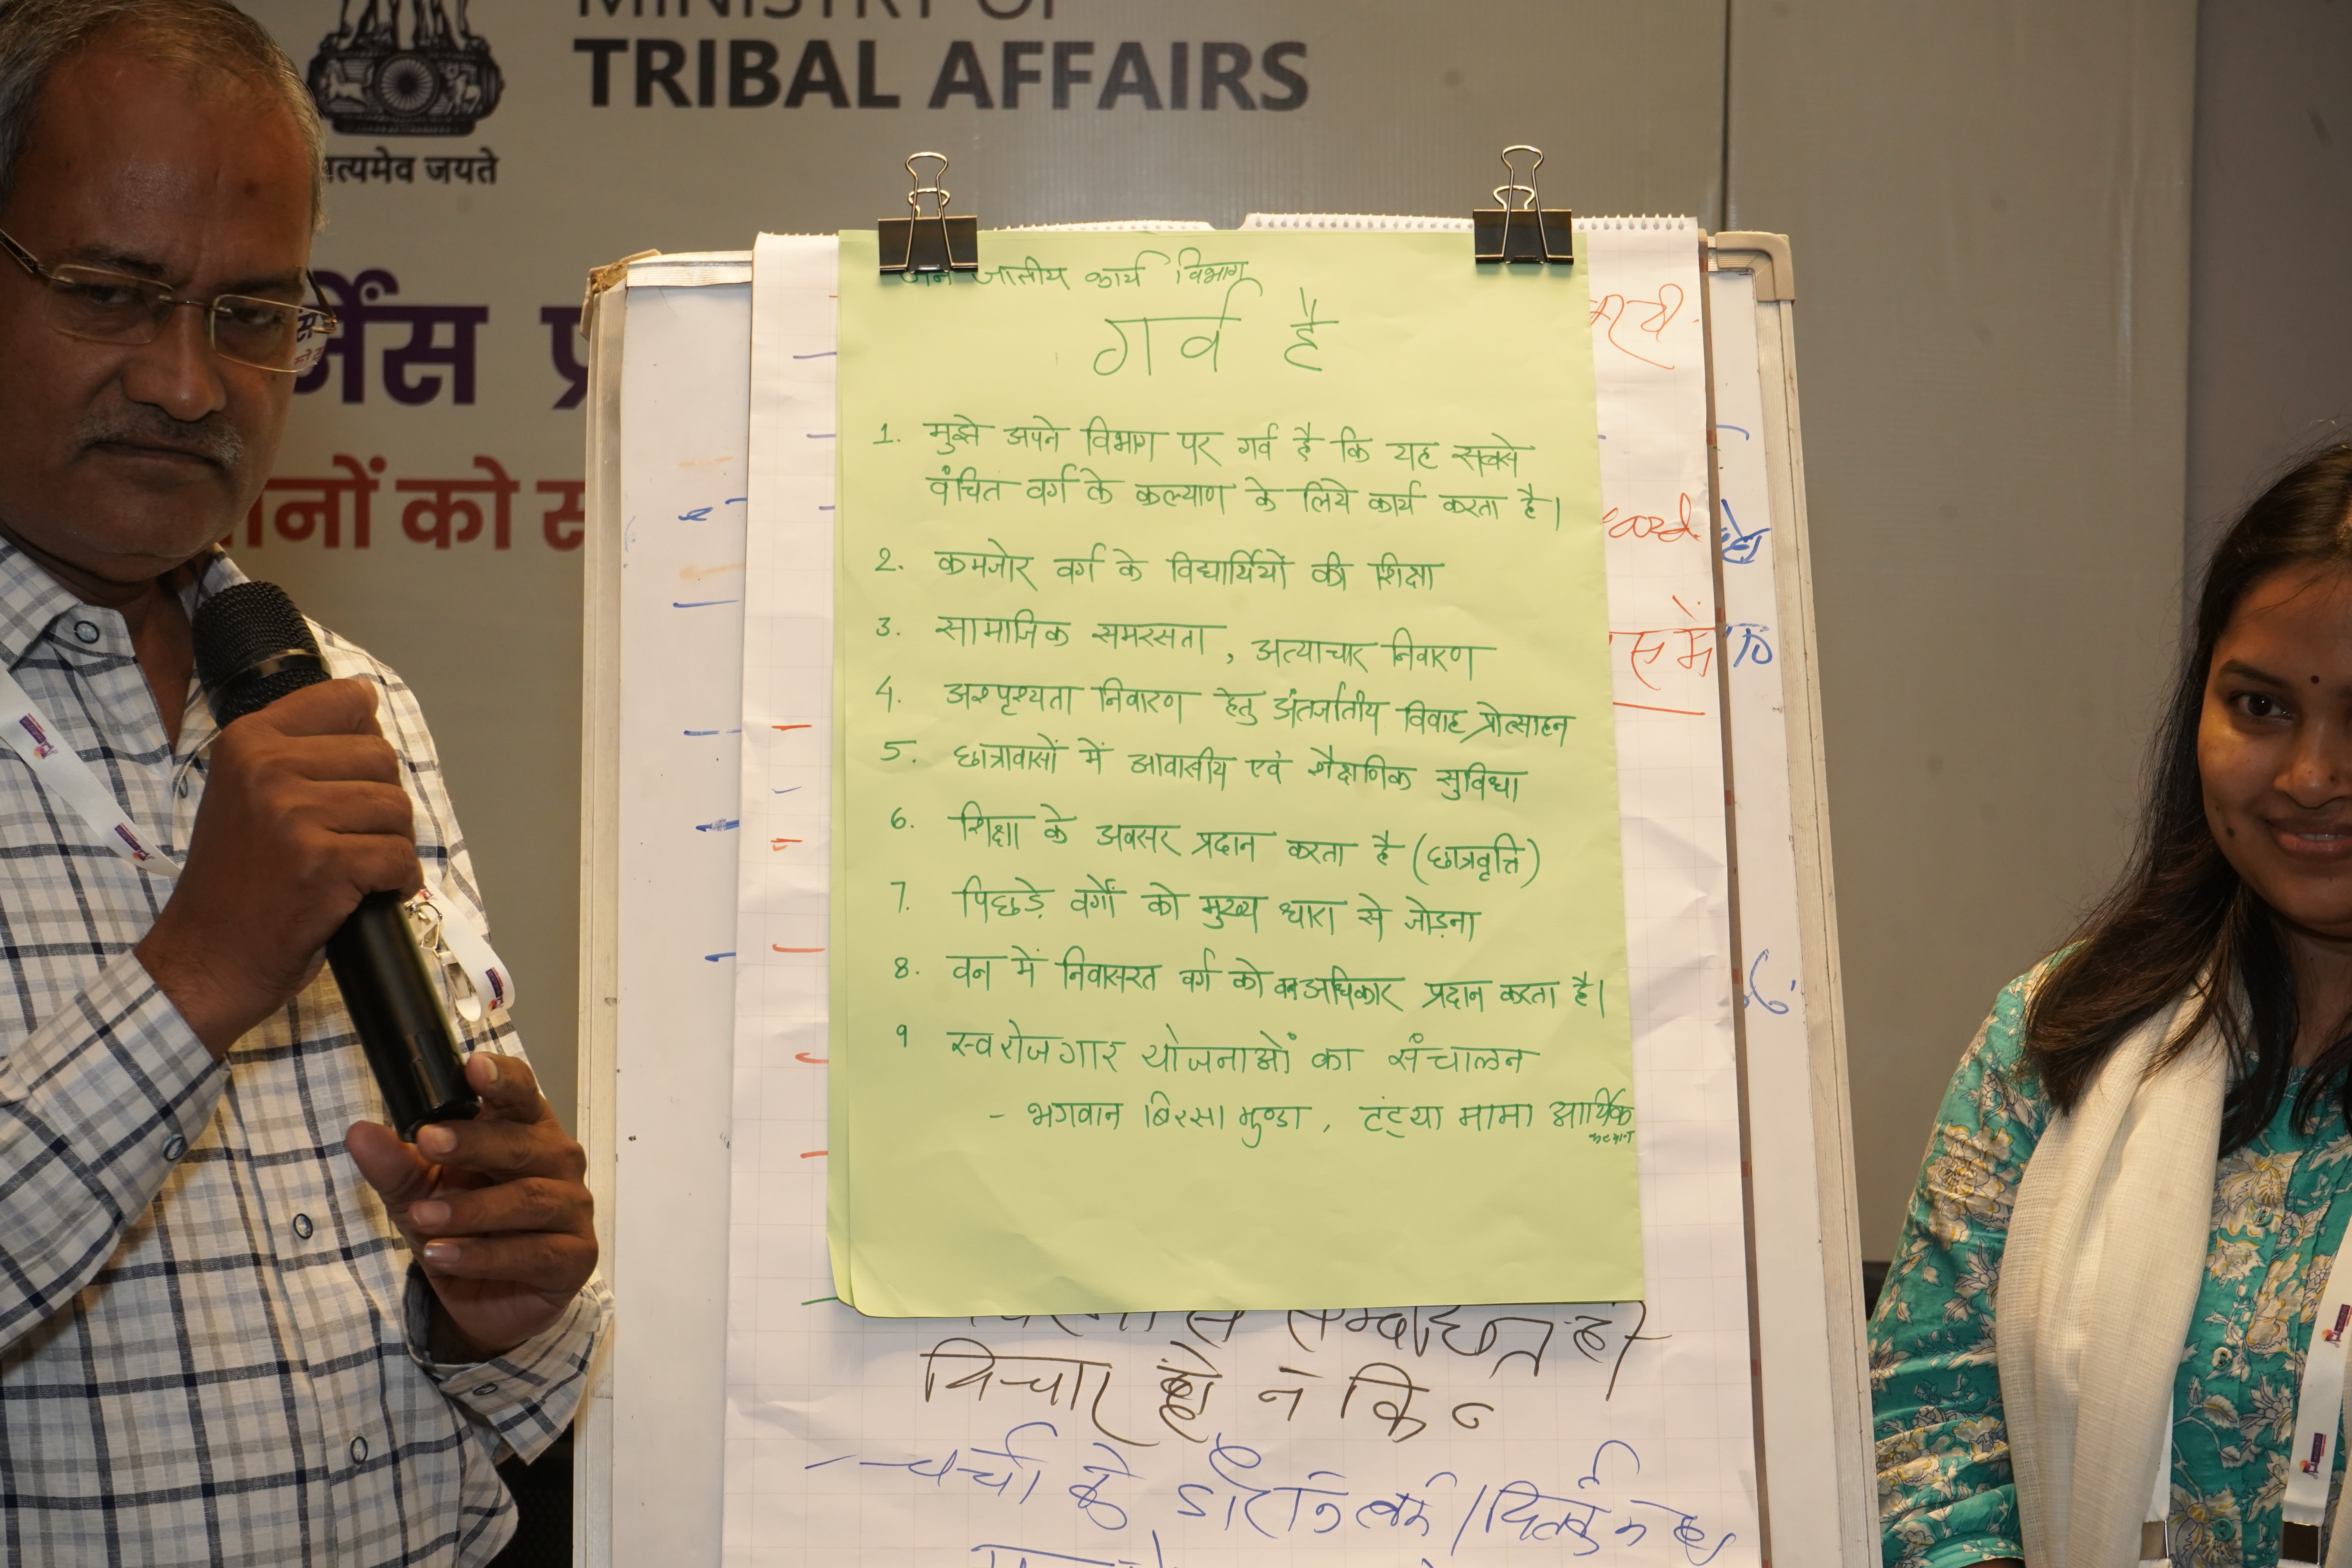 MINISTRY OF
TRIBAL AFFAIRS
सत्यमेव जयते
को
जन जातीय कार्य विभाग
गर्व है
1. मुझे अपने विभाग पर गर्व है कि यह सबसे
वंचित वर्ग के कल्याण के लिये कार्य करता है।
2. कमजोर वर्ग के विद्यार्थियों की शिक्षा
3. सामाजिक समरसता, अत्याचार निवारण
4. अश्पृश्यता निवारण हेतु अंतर्जातीय विवाह प्रोत्साहन
5. छात्रावासों में आवासीय एवं शैक्षणिक सुविधा
6. शिक्षा के अवसर प्रदान करता है (छात्रवृत्ति)
7. पिछड़े वर्गों को मुख्य धारा से जोड़ना
8. वन में निवासरत वर्ग को वन अधिकार प्रदान करता है।
9 स्वरोजगार योजनाओं का संचालन
- भगवान बिरसा मुण्डा, टंट्या मामा आर्थिक
विचार हो न कि
- चर्चा के